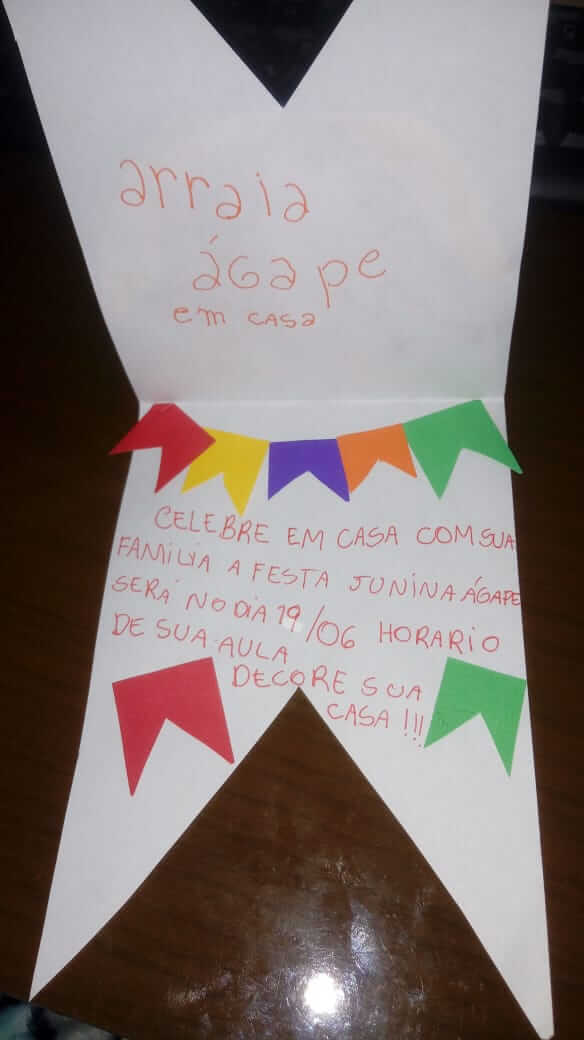 arraia
ágape
em casa
CELEBRE EM CASA COM SUA
FAMILIA A FESTA JUNINA ÁGAPE
SERÁ NO DIA 19/06 HORARIO
DE SUA AULA
DECORE SUA
CASA!!!